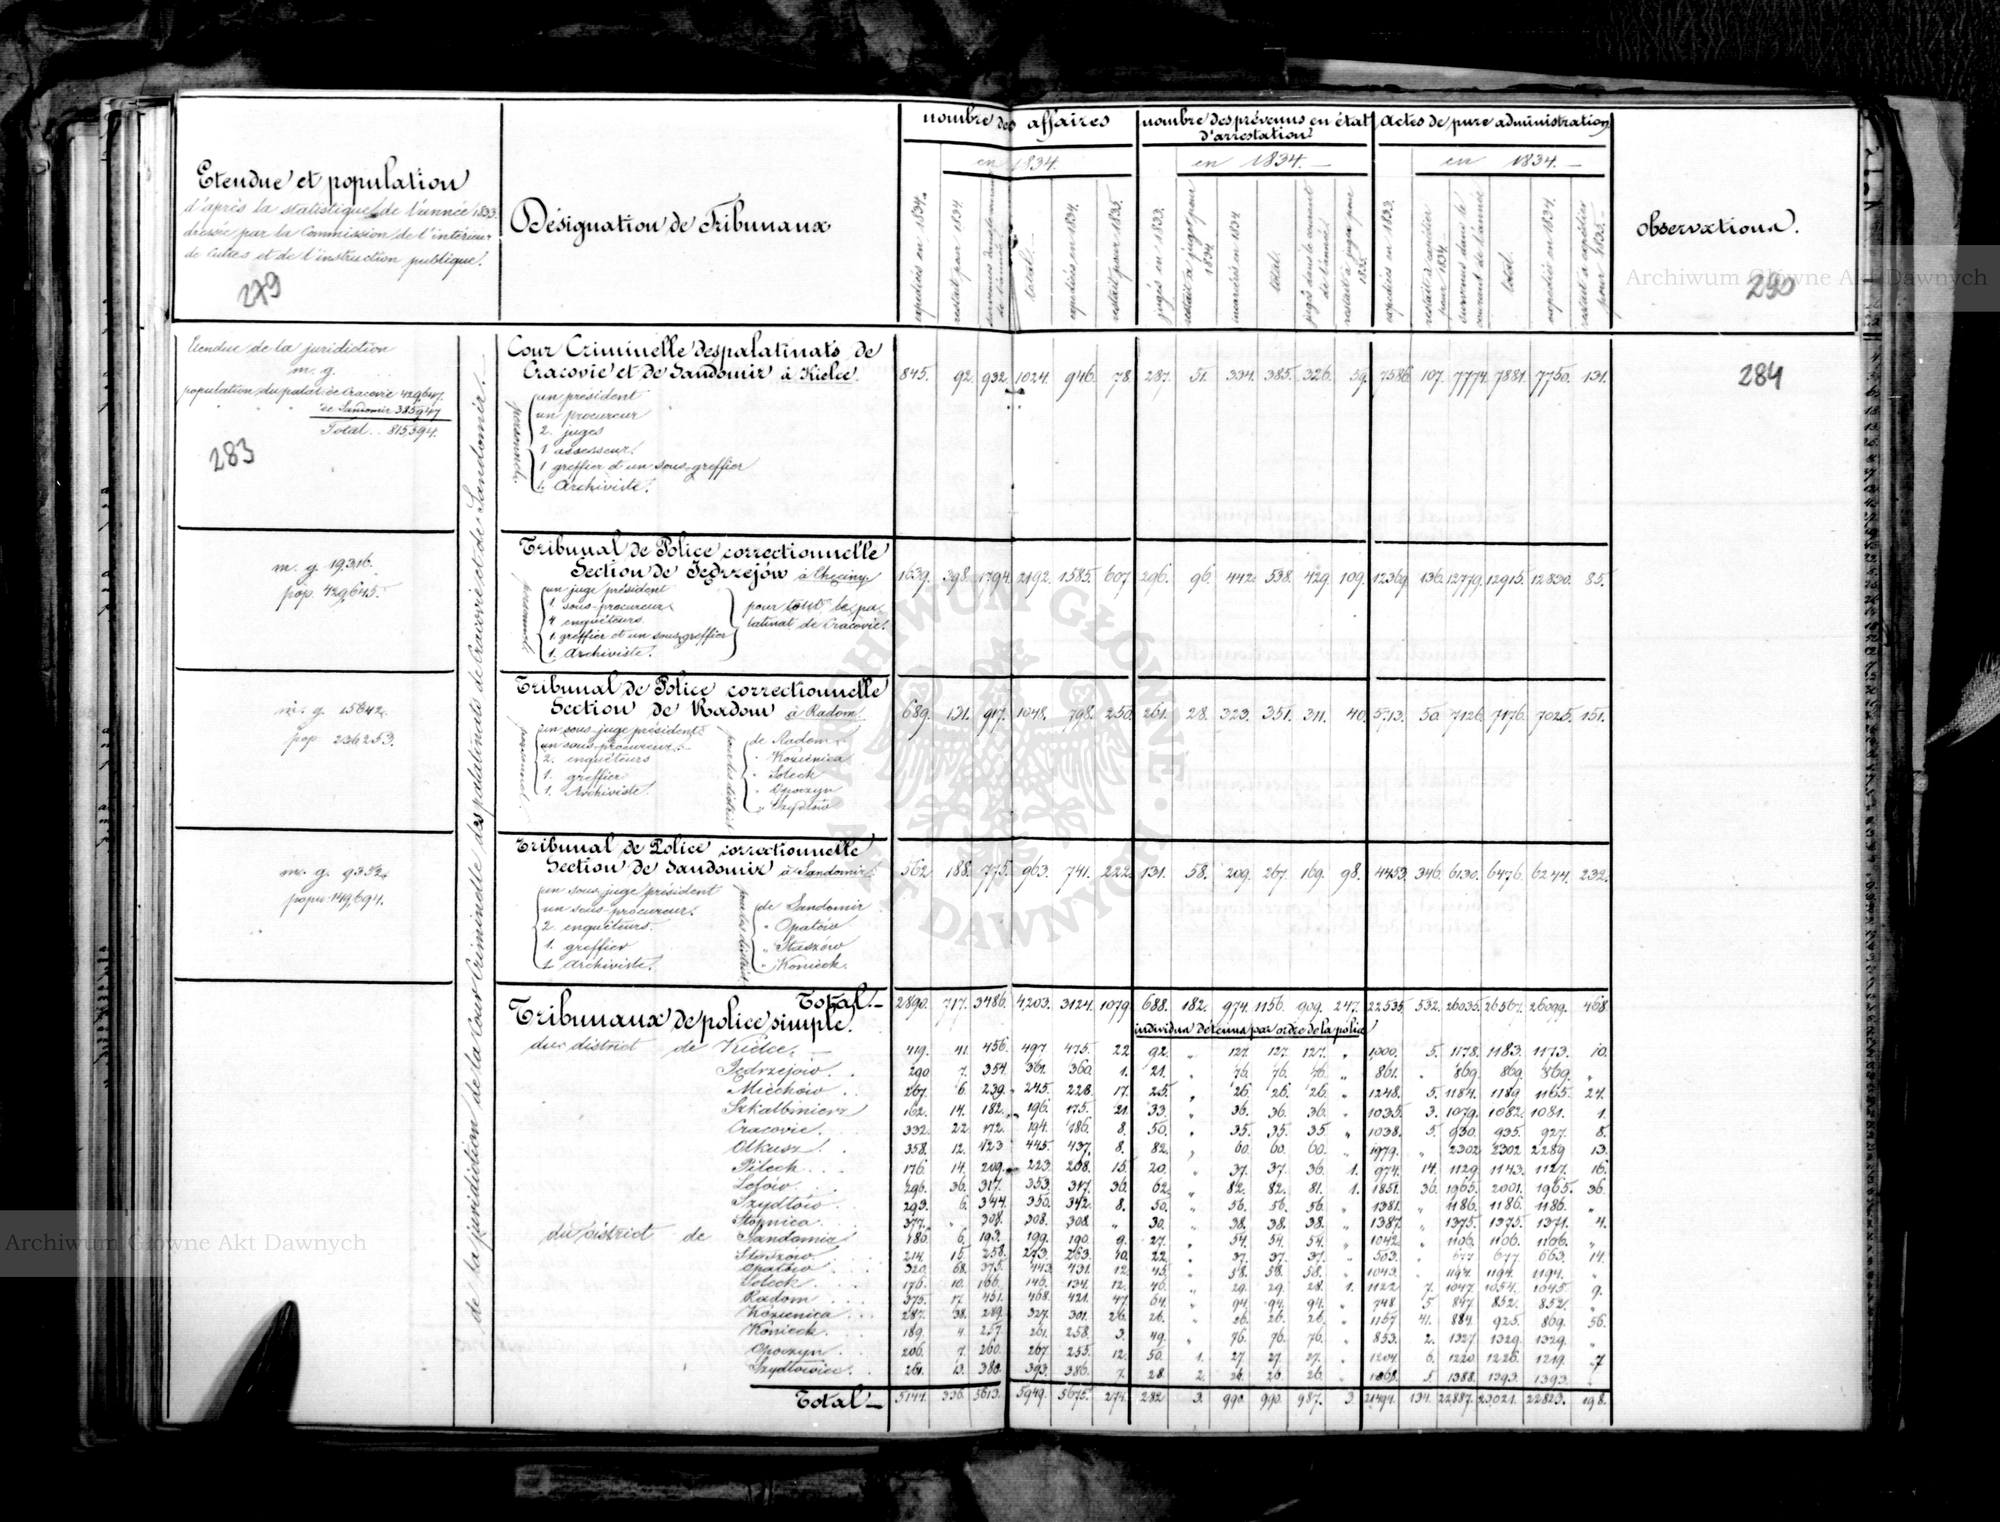 Etendue et population
d'après la statistique de l'année 1833.
dressée par la Commission de l'intérieur
de Cultes et de l'instruction publique.
279
Désignation de Tribunaux
nombre des affaires
en 1834.
expediées en 1834.
restait pour 1834.
total.
expediées en 1834.
restait pour 1835.
nombre des prévenus en état
d'arrestation
en 1834.
jugés en 1833.
restait à juger pour
1834
incarcérés en 1834
total.
jugés dans le courant
de l'année.
restait à juger pour
1835
Actes de pure administration
en 1834.
expediés en 1833.
restait à expédier
pour 1834
survenus dans le
courant de l'année
total.
expediés en 1834.
restait à expédier
pour 1835.
observations.
290
Archiwum Główne Akt Dawnych
Etendue de la juridiction
m. g.
population du palat: de Cracovie 429,647.
de Sandomir 385,947
Total .. 815,594.
283
284
de la juridiction de la Cour Criminelle des palatinats de Cracovie et de Sandomir.
Cour Criminelle des palatinats de
Cracovie et de Sandomir à Kielce. 845. 92. 932. 1024. 946. 78. 287. 51. 334. 385. 326. 59. 7586. 107. 7774. 7881. 7750. 131.
personnel
un président
un procureur
2. juges
1. assesseur.
1 greffier et un sous-greffier
1. Archiviste.
m. g. 19316.
pop. 429,645.
Tribunal de Police correctionnelle
Section de Jędrzejów à Chęciny 1639. 398. 1794. 2192. 1585. 607. 296. 96. 442. 538. 429. 109. 12369. 136. 12779. 12915. 12830. 85.
personnel
un juge président
1. sous-procureur
4 enquêteurs
1. greffier et un sous-greffier
1. Archiviste.
pour tout le pa-
latinat de Cracovie.
m. g. 15642.
pop. 236253.
Tribunal de Police correctionnelle
Section de Radom à Radom. 689. 131. 917. 1048. 798. 250. 261. 28. 323. 351. 311. 40. 5713. 50. 7126. 7176. 7025. 151.
personnel
un sous-juge président
un sous-procureur
2. enquêteurs
1. greffier
1. Archiviste.
pour les districts
de Radom
" Kozienice
" Soleck
" Opoczyn
" Szydłów
m. g. 9352.
popu: 149,694.
Tribunal de Police correctionnelle
Section de Sandomir à Sandomir. 562 188. 775. 963. 741. 222. 131. 58. 209. 267. 169. 98. 4453. 346. 6130. 6476. 6244. 232.
un sous-juge président
un sous-procureur.
2. enquêteurs.
1. greffier
1. Archiviste.
pour les districts
de Sandomir
" Opatów
" Staszów
" Konieck.
Total.— 2890. 717. 3486. 4203. 3124. 1079. 688. 182. 974. 1156. 909. 247. 22535. 532. 26035. 26567. 26099. 468.
Tribunaux de police simple.
individus détenus par ordre de la police
du district de Kielce. 419. 41. 456. 497. 475. 22 92. " 127. 127. 127. " 1000. 5. 1178. 1183. 1173. 10.
Jędrzejów. 290 7. 354 361. 360. 1. 21. " 76. 76. 76. " 861. " 869. 869. 869. "
Miechów. 267. 6. 239. 245. 228. 17. 25. " 26. 26. 26. " 1248. 5. 1184. 1189. 1165. 24.
Szkalbmierz 162. 14. 182. 196. 175. 21. 33. " 36. 36. 36. " 1035. 3. 1079. 1082. 1081. 1.
Cracovie. 332. 22. 172. 194. 186. 8. 50. " 35. 35. 35 " 1038. 5. 930. 935. 927. 8.
Olkusz. 358. 12. 423 445. 437. 8. 82. " 60. 60. 60. " 1979. " 2302 2302 2289 13.
Pileck. 176. 14. 209. 223. 208. 15. 20. " 37. 37. 36. 1. 974. 14. 1129. 1143. 1127. 16.
Lelów. 296. 36. 317. 353. 317. 36. 62. " 82. 82. 81. 1. 1851. 36. 1965. 2001. 1965. 36.
Szydłów 293. 6. 344. 350. 342. 8. 50. " 56. 56. 56. " 1381. " 1186. 1186. 1186. "
Stopnica 377. " 308. 308. 308. " 30. " 38. 38. 38. " 1387. " 1375. 1375. 1371. 4.
du district de Sandomir 180. 6. 193. 199. 190. 9. 27. " 54. 54. 54. " 1042. " 1106. 1106. 1106. "
Staszów 214. 15. 258. 273. 263. 10. 22. " 37. 37. 37. " 503. " 677 677 663. 14.
Opatów 320. 68. 375. 443. 431. 12. 45. " 58. 58. 58. " 1043. " 1194. 1194. 1194. "
Soleck 176. 10. 166. 146. 134. 12. 46. " 29. 29. 28. 1. 1122. 7. 1047. 1054. 1045. 9.
Radom 375. 17. 451. 468. 421. 47 64. " 94. 94. 94. " 748. 5. 847. 852. 852. "
Kozienice 287. 38. 289. 327. 301. 26. 26. " 26. 26. 26. " 1157. 41. 884. 925. 869. 56.
Konieck. 189. 4. 257. 261. 258. 3. 49. " 76. 76. 76. " 853. 2. 1327. 1329. 1329. "
Opoczyn 206. 7. 260. 267. 255. 12. 50. 1. 27. 27. 27. " 1204. 6. 1220. 1226. 1219. 7
Szydłowiec 261. 13. 380. 393. 386. 7. 28. 2. 26. 26. 26. " 1068. 5. 1388. 1393. 1393. "
Total.— 5144. 336. 5613. 5949. 5675. 274. 282. 3. 990. 990. 987. 3. 21494. 134. 22887. 23021. 22823. 198.
Archiwum Główne Akt Dawnych
ARCHIWUM GŁÓWNE AKT DAWNYCH